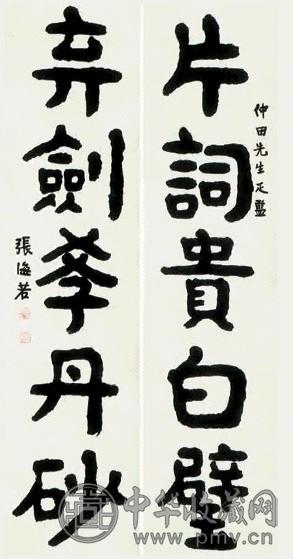 片詞貴白璧
仲田先生疋監
弃劍學丹砂
張海若
中华收藏网
www.pmv.cn